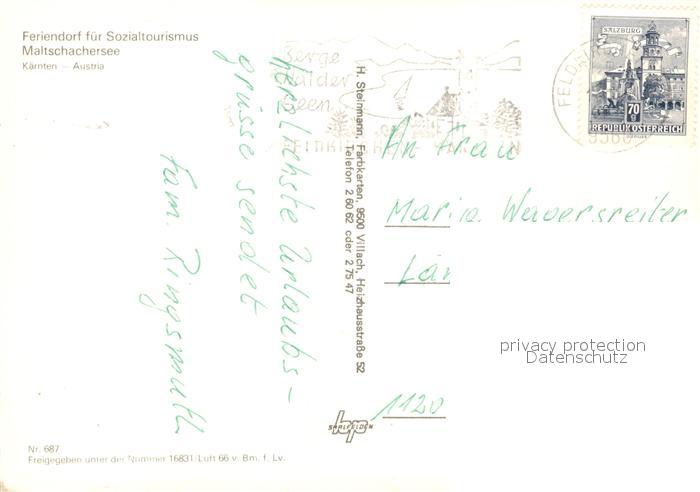 Feriendorf für Sozialtourismus
Maltschachersee
Kärnten – Austria
Berge
Wälder
Seen
FELDKIRCHEN
SALZBURG
70 g
REPUBLIK ÖSTERREICH
herzlichste Urlaubs-
grüsse sendet
Fam. Ringsmuth
H. Steinmann, Farbkarten, 9500 Villach, Heizhausstraße 52
Telefon 2 60 62 oder 2 75 47
An Frau
Maria Wawersreiter
1120
privacy protection
Datenschutz
SAALFELDEN
Nr. 687
Freigegeben unter der Nummer 16831/Luft 66 v. Bm. f. Lv.